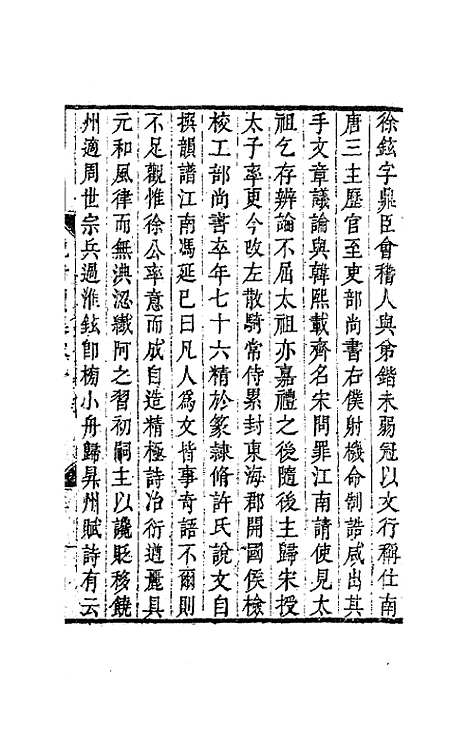 徐鉉字鼎臣會稽人與弟鍇未弱冠以文行稱仕南
唐三主歷官至吏部尚書右僕射機命制誥咸出其
手文章議論與韓熙載齊名宋問罪江南請使見太
祖乞存辨論不屈太祖亦嘉禮之後隨後主歸宋授
太子率更令改左散騎常侍累封東海郡開國侯檢
校工部尚書卒年七十六精於篆隷脩許氏說文自
撰韻譜江南馮延巳曰凡人為文皆事奇語不爾則
不足觀惟徐公率意而成自造精極詩冶衍遒麗具
元和風律而無淟涊纖阿之習初嗣主以讒貶移饒
州適周世宗兵過淮鉉即榜小舟歸昇州賦詩有云